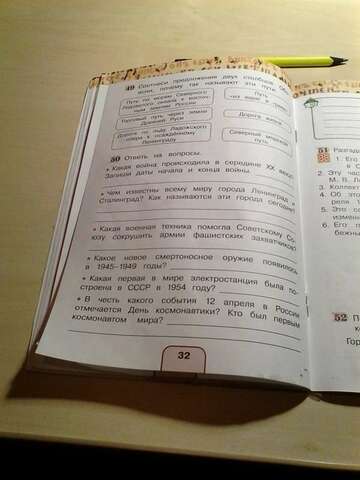 49 Соотнеси продолжения двух столбцов. Объ-
ясни, почему так называют эти пути.
Путь по морям Северного
Ледовитого океана к восточ-
ным землям России
Путь
Торговый путь через земли
Древней Руси
Дорога жизни
Дорога по льду Ладожского
озера к осаждённому
Ленинграду
Северный морской
путь
50 Ответь на вопросы.
• Какая война происходила в середине XX века?
Запиши даты начала и конца войны.
• Чем известны всему миру города Ленинград и
Сталинград? Как называются эти города сегодня?
• Какая военная техника помогла Советскому Со-
юзу сокрушить армии фашистских захватчиков?
• Какое новое смертоносное оружие появилось
в 1945–1949 годы?
• Какая первая в мире электростанция была по-
строена в СССР в 1954 году?
• В честь какого события 12 апреля в России
отмечается День космонавтики? Кто был первым
космонавтом мира?
32
51 Разгад
1. Его
в
2. Эту
М. В. Л
3. Коллект
4. Об это
реля 1
5. Состоя
изменен
6. Его п
бежны
52 П
к
Гор